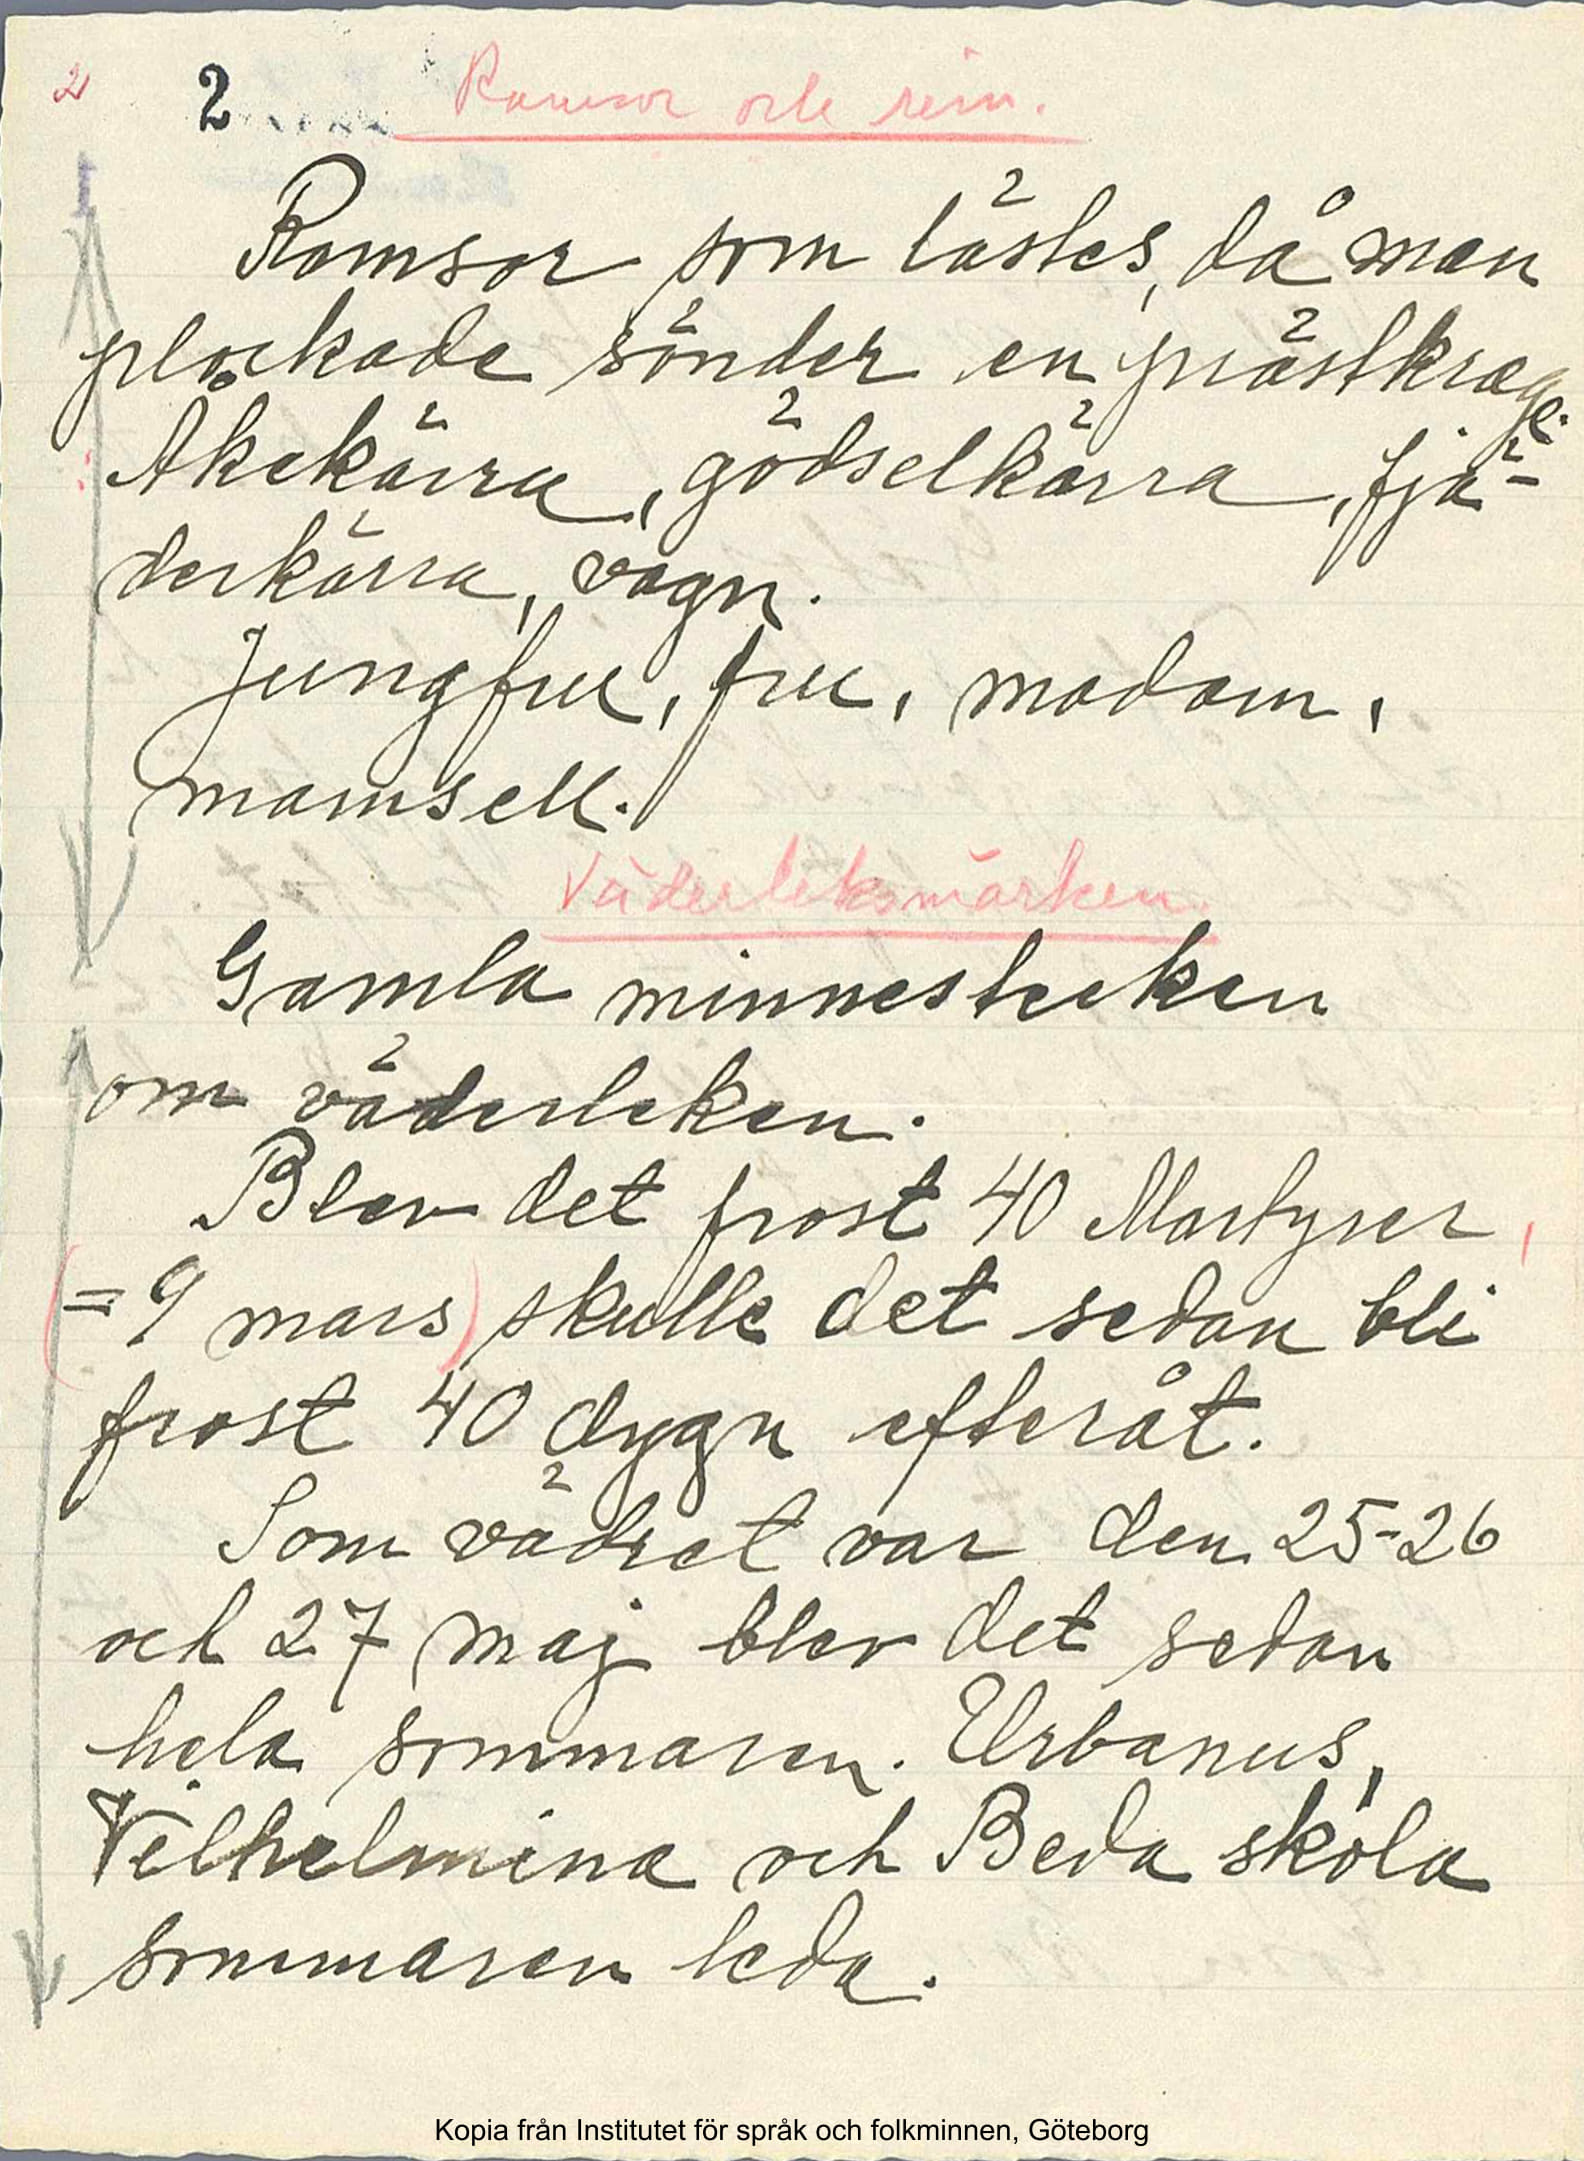 2 2 Ramsor och rim.
1
Ramsor som lästes, då man
plockade sönder en prästkrage.
Åkekärra, gödselkärra, fjä-
derkärra, vagn.
Jungfru, fru, madam,
mamsell.
Väderleksmärken.
Gamla minnestecken
om väderleken.
Blev det frost 40 Martyrer,
(= 9 mars) skulle det sedan bli
frost 40 dygn efteråt.
Som vädret var den 25-26
och 27 maj blev det sedan
hela sommaren. Urbanus,
Vilhelmina och Beda skola
sommaren leda.
Kopia från Institutet för språk och folkminnen, Göteborg